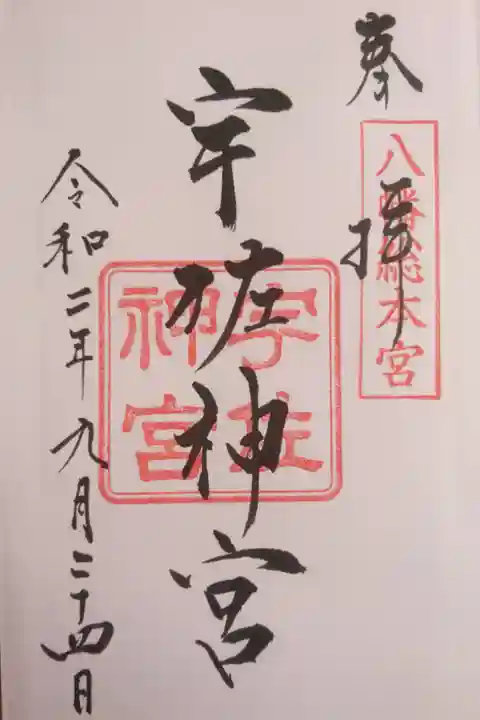 奉拝
八幡総本宮
宇佐神宮
宇佐神宮
令和二年九月二十四日